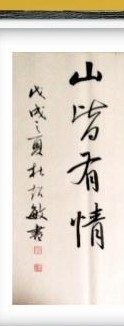 山皆有情
戊戌之夏杜
敏書